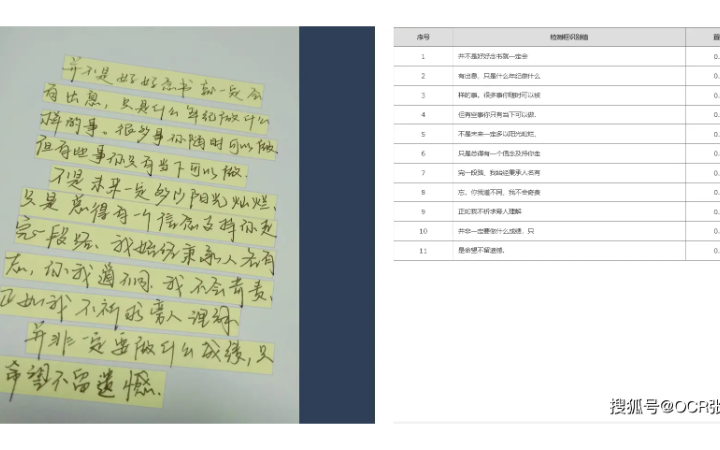 并不是好好念书就一定会
有出息，只是什么年纪做什么
样的事。很多事你随时可以做，
但有些事你只有当下可以做.
不是未来一定多以阳光灿烂.
只是总得有一个信念支持你走
完一段路。我始终秉承人各有
志，你我道不同.我不会苛责.
正如我不祈求旁人理解
并非一定要做什么成绩，只
希望不留遗憾.
序号 检测框识别值
1 并不是好好念书就一定会 0.
2 有出息，只是什么年纪康什么 0.
3 样的事。很多事你随时可以被 0.
4 但有些事你只有当下可以做。 0.
5 不是未来一定多以阳光灿烂。 0.
6 只是总得有一个信念及持你走 0.
7 完一段路，我始经要承人名有 0.
8 忘，你我道不同，我不会奇责 0.
9 正如我不祈求帮人理解 0.
10 并非一定要做什么成绩，只 0.
11 是命望不留遗憾. 0.
搜狐号@OCR张